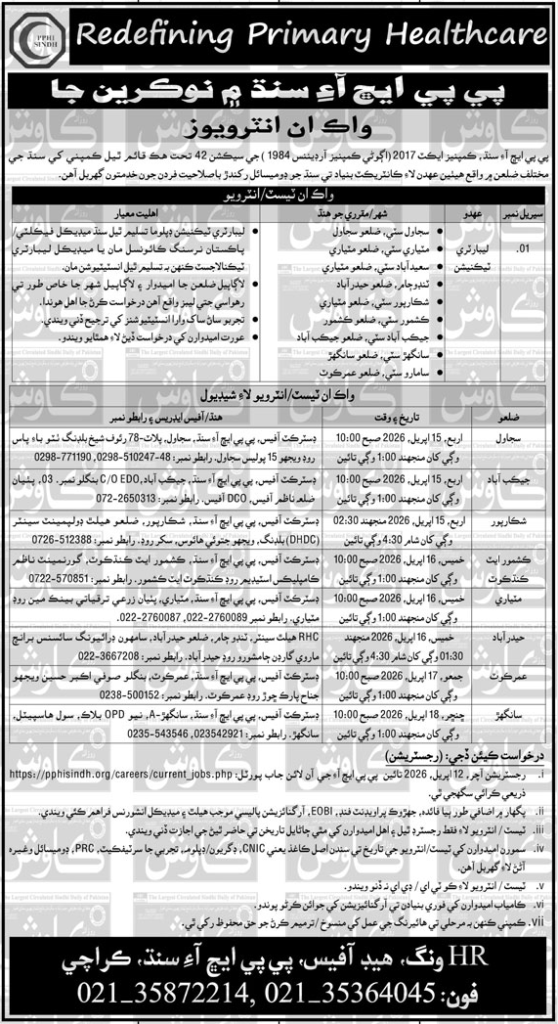 PPHI
SINDH
Redefining Primary Healthcare
پي پي ايڇ آءِ سنڌ ۾ نوڪرين جا
واڪ ان انٽرويوز
پي پي ايڇ آءِ سنڌ، ڪمپنيز ايڪٽ 2017 (اڳوڻي ڪمپنيز آرڊيننس 1984) جي سيڪشن 42 تحت هڪ قائم ٿيل ڪمپني کي سنڌ جي
مختلف ضلعن ۾ واقع هيٺين عهدن لاءِ ڪانٽريڪٽ بنياد تي سنڌ جو ڊوميسائل رکندڙ باصلاحيت فردن جون خدمتون گهربل آهن.
واڪ ان ٽيسٽ/انٽرويو
سيريل نمبر
عهدو
شهر/مقرري جو هنڌ
اهليت معيار
01.
ليبارٽري ٽيڪنيشن
سجاول سٽي، ضلعو سجاول
مٽياري سٽي، ضلعو مٽياري
سعيدآباد سٽي، ضلعو مٽياري
ٽنڊوڄام، ضلعو حيدرآباد
شڪارپور سٽي، ضلعو مٽياري
ڪشمور سٽي، ضلعو ڪشمور
جيڪب آباد سٽي، ضلعو جيڪب آباد
سانگهڙ سٽي، ضلعو سانگهڙ
سامارو سٽي، ضلعو عمرڪوٽ
ليبارٽري ٽيڪنيشن ڊپلوما تسليم ٿيل سنڌ ميڊيڪل فيڪلٽي/
پاڪستان نرسنگ ڪائونسل مان يا ميڊيڪل ليبارٽري
ٽيڪنالاجسٽ ڪنهن به تسليم ٿيل انسٽيٽيوشن مان.
لاڳاپيل ضلعن جا اميدوار ۽ لاڳاپيل شهر جا خاص طور تي
رهواسي جتي ليبز واقع آهن درخواست ڪرڻ جا اهل هوندا.
تجربو ساڻ ساک وارا انسٽيٽيوشنز کي ترجيح ڏني ويندي.
عورت اميدوارن کي درخواست ڏيڻ لاءِ همٿايو ويندو.
واڪ ان ٽيسٽ/انٽرويو لاءِ شيڊيول
ضلعو
تاريخ ۽ وقت
هنڌ/آفيس ايڊريس ۽ رابطو نمبر
سجاول
اربع، 15 اپريل، 2026 صبح 10:00
وڳي کان منجهند 1:00 وڳي تائين
ڊسٽرڪٽ آفيس، پي پي ايڇ آءِ سنڌ، سجاول، پلاٽ-78 رئوف شيخ بلڊنگ ٺٽو باءِ پاس
روڊ ويجهو 15 پوليس سجاول. رابطو نمبر: 48-510247-0298، 771190-0298
جيڪب آباد
اربع، 15 اپريل، 2026 صبح 10:00
وڳي کان منجهند 1:00 وڳي تائين
ڊسٽرڪٽ آفيس، پي پي ايڇ آءِ سنڌ، جيڪب آباد، C/O EDO بنگلو نمبر. 03، پٺيان
ضلع ناظم آفيس، DCO آفيس. رابطو نمبر: 2650313-072
شڪارپور
اربع، 15 اپريل، 2026 منجهند 02:30
وڳي کان شام 4:30 وڳي تائين
ڊسٽرڪٽ آفيس، پي پي ايڇ آءِ سنڌ، شڪارپور، ضلعو هيلٿ ڊولپمينٽ سينٽر
(DHDC) بلڊنگ، ويجهو جتوئي هائوس، سکر روڊ. رابطو نمبر: 512388-0726
ڪشمور ايٽ ڪنڌڪوٽ
خميس، 16 اپريل، 2026 صبح 10:00
وڳي کان منجهند 1:00 وڳي تائين
ڊسٽرڪٽ آفيس، پي پي ايڇ آءِ سنڌ، ڪشمور ايٽ ڪنڌڪوٽ، گورنمينٽ ناظم
ڪامپليڪس اسٽيڊيم روڊ ڪنڌڪوٽ ايٽ ڪشمور. رابطو نمبر: 570851-0722
مٽياري
خميس، 16 اپريل، 2026 صبح 10:00
وڳي کان منجهند 1:00 وڳي تائين
ڊسٽرڪٽ آفيس، پي پي ايڇ آءِ سنڌ، مٽياري، پٺيان زرعي ترقياتي بينڪ مين روڊ
مٽياري. رابطو نمبر: 2760089-022، 2760087-022.
حيدرآباد
خميس، 16 اپريل، 2026 منجهند
01:30 وڳي کان شام 4:30 وڳي تائين
RHC هيلٿ سينٽر، ٽنڊوڄام، ضلعو حيدرآباد، سامهون ڊرائيونگ سائسنس برانچ
ماروي گارڊن ڄامشورو روڊ حيدرآباد. رابطو نمبر: 3667208-022
عمرڪوٽ
جمعو، 17 اپريل، 2026 صبح 10:00
وڳي کان منجهند 1:00 وڳي تائين
ڊسٽرڪٽ آفيس، پي پي ايڇ آءِ سنڌ، عمرڪوٽ، بنگلو صوفي اڪبر حسين ويجهو
جناح پارڪ ڇوڙ روڊ عمرڪوٽ. رابطو نمبر: 500152-0238
سانگهڙ
ڇنڇر، 18 اپريل، 2026 صبح 10:00
وڳي کان منجهند 1:00 وڳي تائين
ڊسٽرڪٽ آفيس، پي پي ايڇ آءِ سنڌ، سانگهڙ-A، نيو OPD بلاڪ، سول هاسپيٽل،
سانگهڙ. رابطو نمبر: 023542921، 543546-0235
درخواست ڪيئن ڏجي: (رجسٽريشن)
i. رجسٽريشن آچر، 12 اپريل، 2026 تائين پي پي ايڇ آءِ جي آن لائن جاب پورٽل: https://pphisindh.org/careers/current_jobs.php
ذريعي ڪرائي سگهجي ٿي.
ii. پگهار ۾ اضافي طور ٻيا فائدا، جهڙوڪ پراويڊنٽ فنڊ، EOBI، آرگنائزيشن پاليسي موجب هيلٿ ۽ ميڊيڪل انشورنس فراهم ڪئي ويندي.
iii. ٽيسٽ/انٽرويو لاءِ فقط رجسٽرڊ ٿيل ۽ اهل اميدوارن کي مٿي ڄاڻايل تاريخن تي حاضر ٿيڻ جي اجازت ڏني ويندي.
iv. سمورن اميدوارن کي ٽيسٽ/انٽرويو جي تاريخ تي سندن اصل ڪاغذ يعني CNIC، ڊگريون/ڊپلوما، تجربي جا سرٽيفڪيٽ، PRC، ڊوميسائل وغيره
آڻڻ لاءِ گهربل آهن.
v. ٽيسٽ/انٽرويو لاءِ ڪو ٽي اي/ڊي اي نه ڏنو ويندو.
vi. ڪامياب اميدوارن کي فوري بنيادن تي آرگنائيزيشن کي جوائن ڪرڻو پوندو.
vii. ڪمپني ڪنهن به مرحلي تي هائرنگ جي عمل کي منسوخ/ترميم ڪرڻ جو حق محفوظ رکي ٿي.
HR ونگ، هيڊ آفيس، پي پي ايڇ آءِ سنڌ، ڪراچي
فون: 35364045_021، 35872214_021